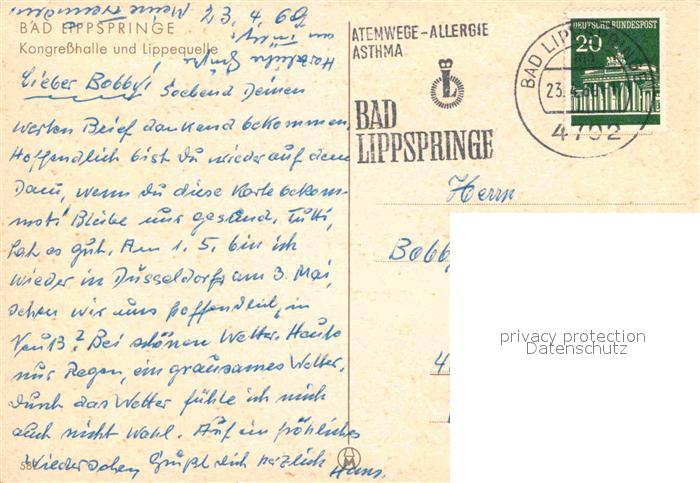 23. 4. 69
BAD LIPPSPRINGE
Kongreßhalle und Lippequelle
Herzliche Grüße
Lieber Bobby! Soebend Deinen
werten Brief dankend bekommen,
Hoffendlich bist Du wieder auf dem
Dam, wenn du diese Karte bekom-
mst! Bleibe nur gesund. Tutti,
hat es gut. Am 1. 5. bin ich
wieder in Düsseldorf, am 3. Mai,
sehen wir uns hoffendlich, in
Neuß? Bei schönen Wetter. Heute
nur Regen, ein grausames Wetter.
Durch das Wetter fühle ich mich
auch nicht wohl. Auf ein fröhliches
Wiedersehen, Grüßt dich herzlich
Hans.
ATEMWEGE-ALLERGIE
ASTHMA
L
BAD
LIPPSPRINGE
DEUTSCHE BUNDESPOST
20
BAD LIPPSPRINGE
23.4.69
4792
Herrn
Bobby
4
privacy protection
Datenschutz